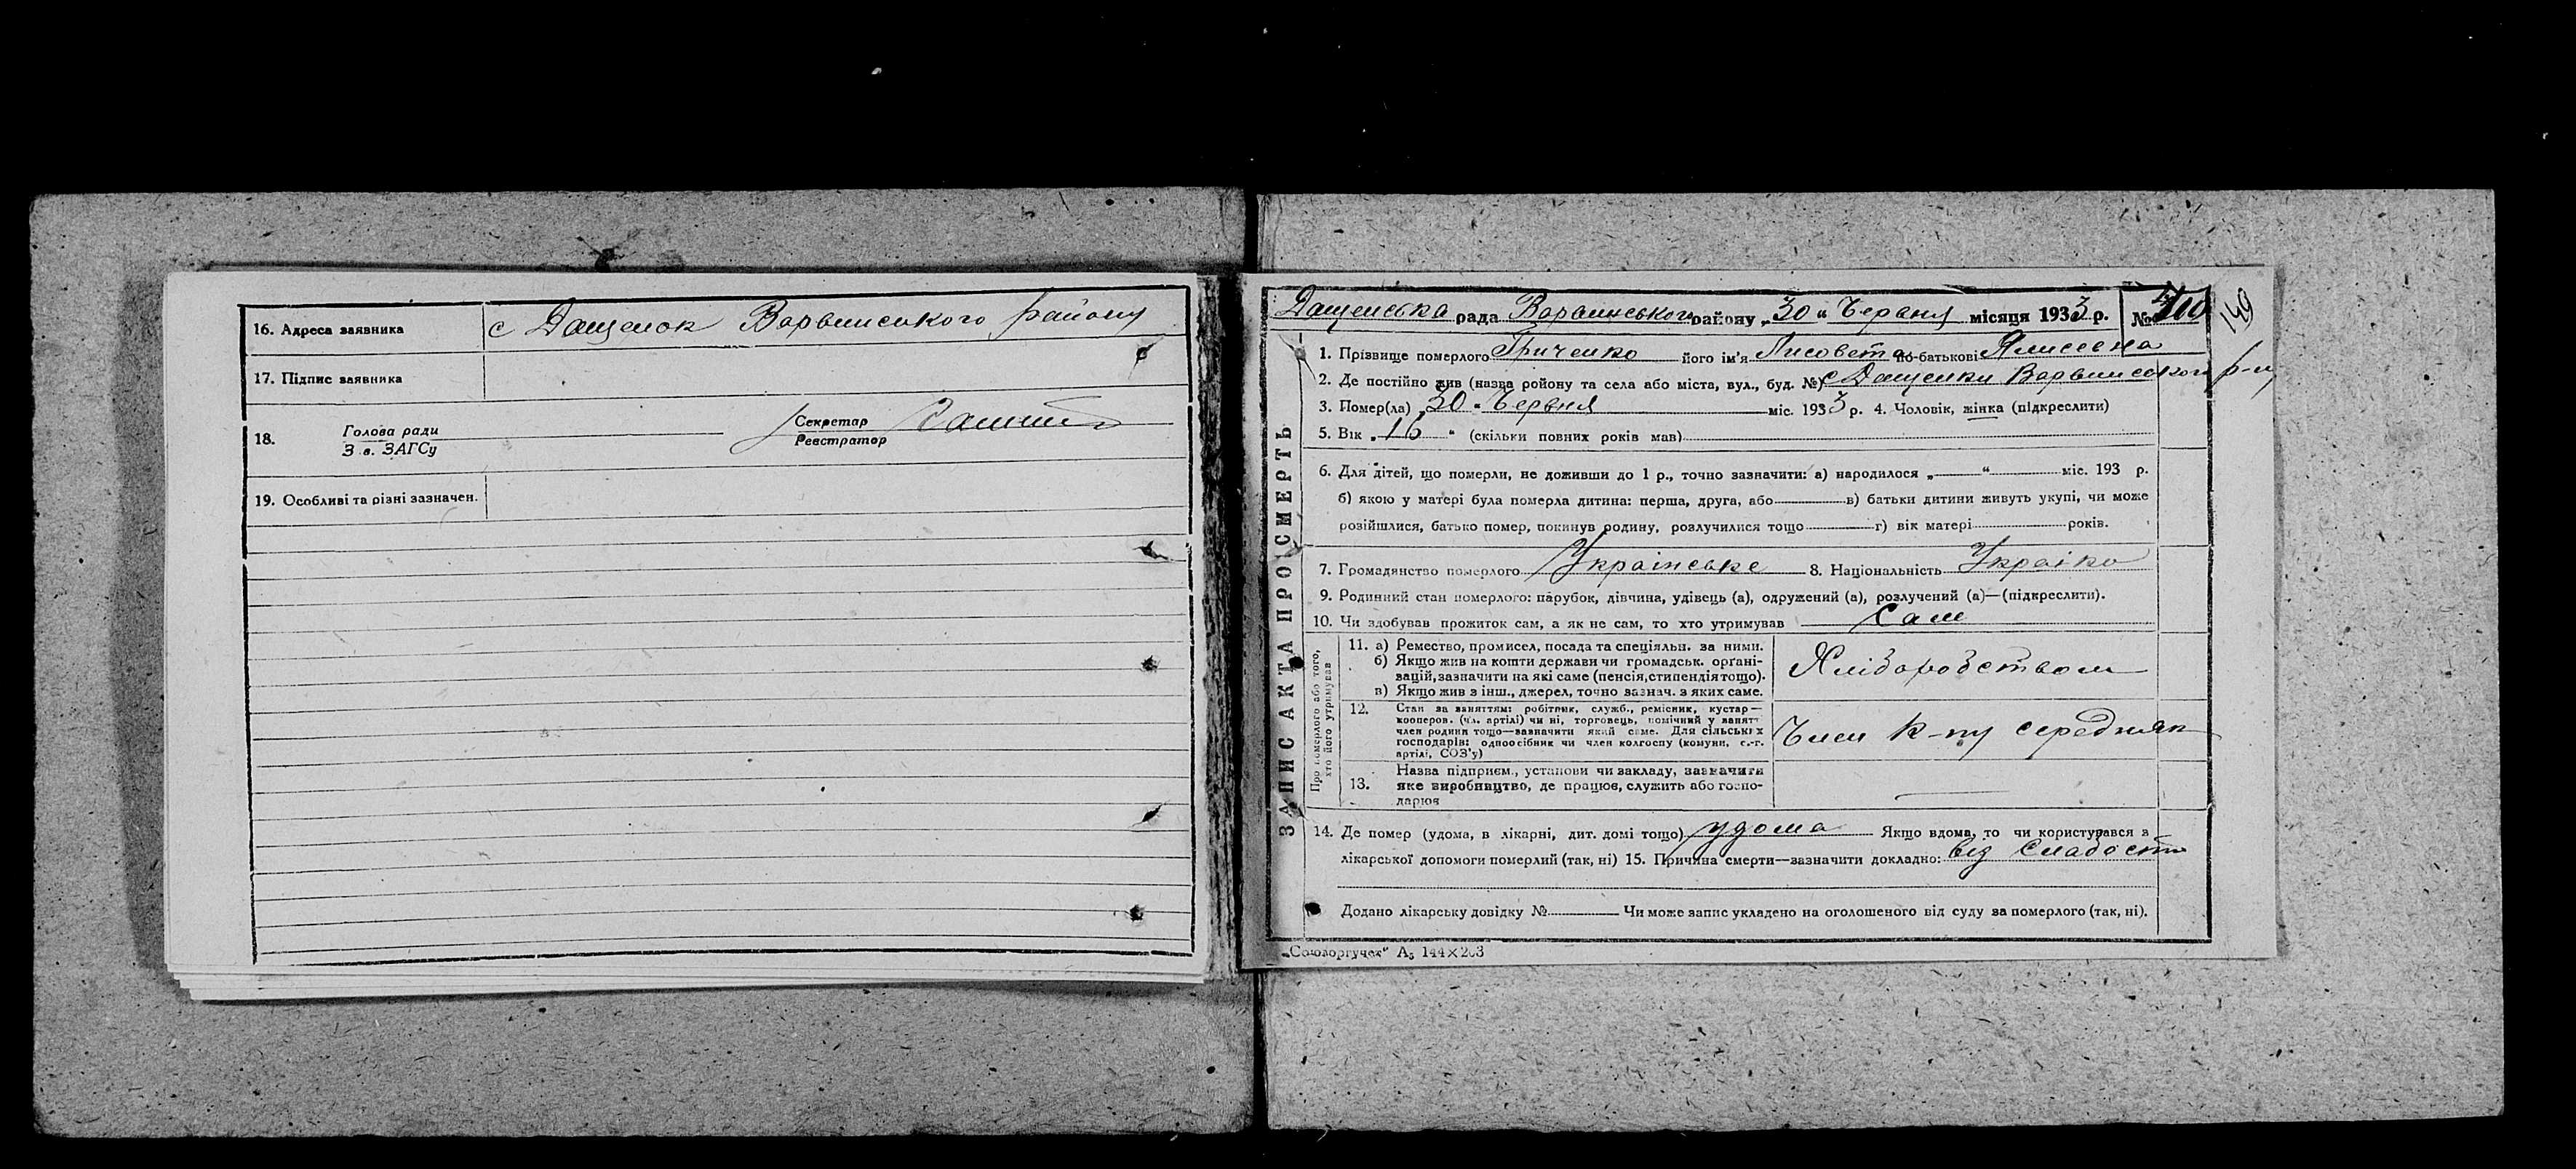 16. Адреса заявника с Дащенок Варвинського району
17. Підпис заявника
18. Голова ради
З в. ЗАГСу
Секретар
Реєстратор
19. Особливі та різні зазначен.
ЗАПИС АКТА ПРО СМЕРТЬ
Дащенська рада Варвинського району „30“ Червня місяця 1933 р. №
149
1. Прізвище померлого Гриченко його ім'я Лисовета по-батькові
2. Де постійно жив (назва ройону та села або міста, вул., буд. №) с Дащенки Варвинського р-ну
3. Помер(ла) „30“ Червня міс. 1933 р. 4. Чоловік, жінка (підкреслити)
5. Вік „16“ (скільки повних років мав)
6. Для дітей, що померли, не доживши до 1 р., точно зазначити: а) народилося „ “ міс. 193 р.
б) якою у матері була померла дитина: перша, друга, або в) батьки дитини живуть укупі, чи може
розійшлися, батько помер, покинув родину, розлучилися тощо г) вік матері років.
7. Громадянство померлого Українське 8. Національність Украінка
9. Родинний стан померлого: парубок, дівчина, удівець (а), одружений (а), розлучений (а)—(підкреслити).
10. Чи здобував прожиток сам, а як не сам, то хто утримував Сам
Про померлого або того,
хто його утримував
11. а) Ремество, промисел, посада та спеціяльн. за ними.
б) Якщо жив на кошти держави чи громадськ. орґані-
зацій, зазначити на які саме (пенсія, стипендія тощо).
в) Якщо жив з інш., джерел, точно зазнач. з яких саме.
Хліборобством
12. Стан за заняттям: робітник, служб., ремісник, кустар—
кооперов. (чл. артілі) чи ні, торговець, помічний у занятт
член родини тощо—зазначити який саме. Для сільських
господарів: одноосібник чи член колгоспу (комуни, с.-г.
артілі, СОЗ'у)
Член к-пу середняк
13. Назва підприєм., установи чи закладу, зазначити
яке виробництво, де працює, служить або госпо-
дарює
14. Де помер (удома, в лікарні, дит. домі тощо) удома Якщо вдома, то чи користувався з
лікарської допомоги померлий (так, ні) 15. Причина смерти—зазначити докладно: від слабости
Додано лікарську довідку № Чи може запис укладено на оголошеного від суду за померлого (так, ні).
„Союзоргучет“ А₅ 144×203